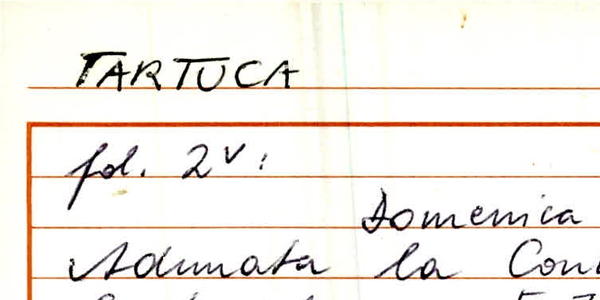 TARTUCA
fol. 2v:
Domenica
Adunata la